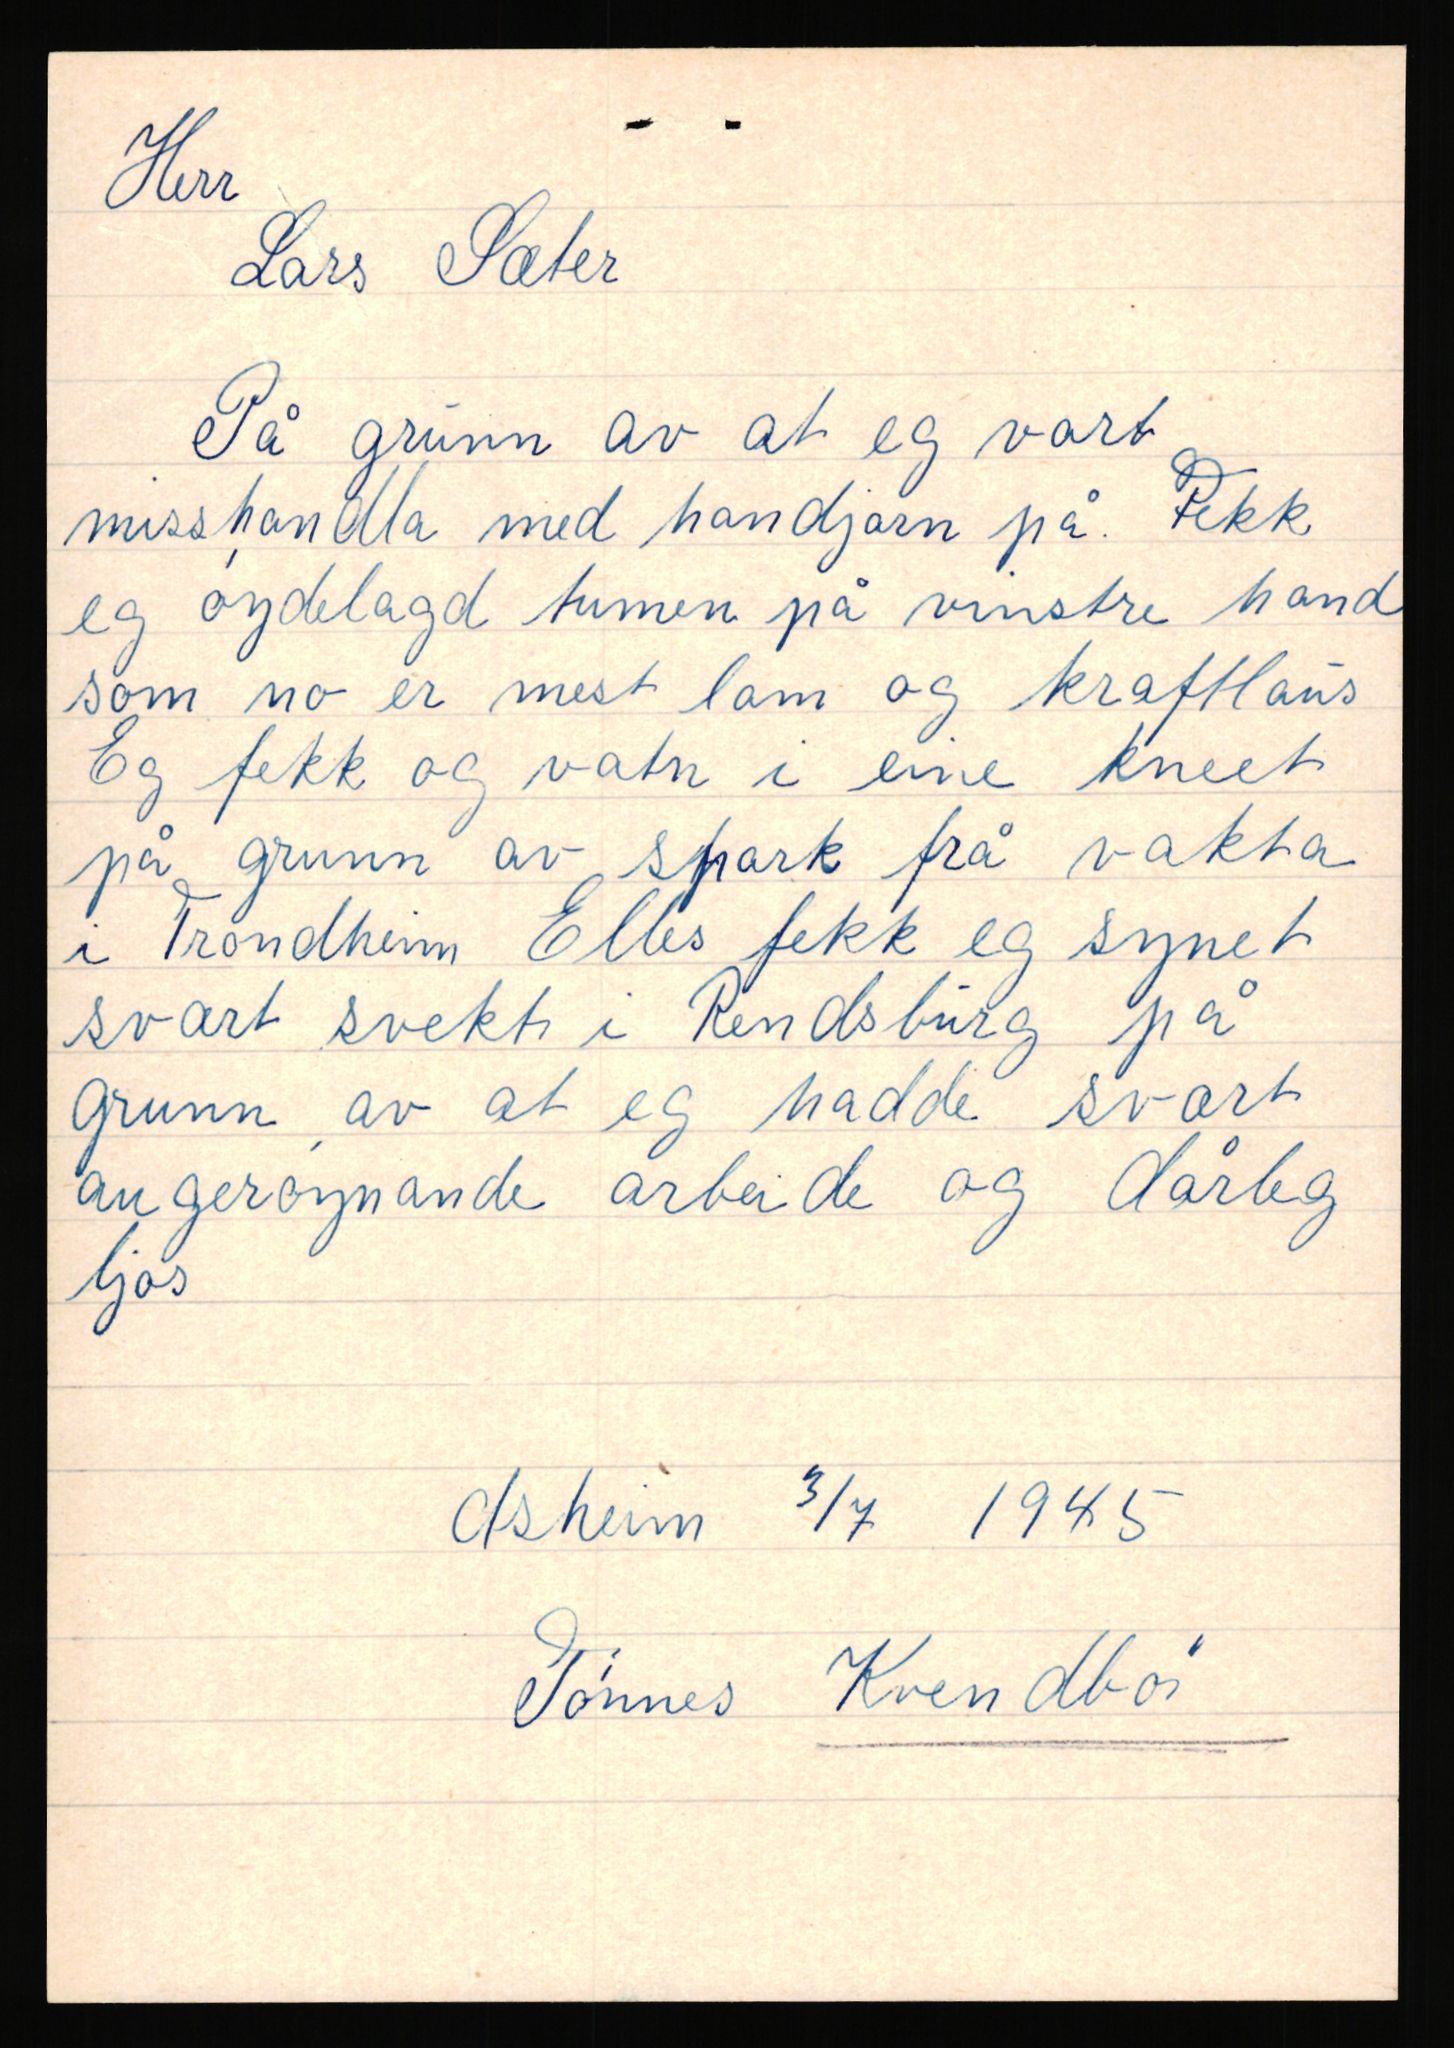 Herr
Lars Sæter
På grunn av at eg vart
misshandla med handjarn på. Fekk
eg øydelagd tumen på vinstre hand
som no er mest lam og kraftlaus
Eg fekk og vatn i eine kneet
på grunn av spark frå vakta
i Trondheim Elles fekk eg synet
svært svekt i Rendsburg på
grunn av at eg hadde svært
augerøynande arbeide og dårleg
ljos
Åsheim 3/7 1945
Tønnes Kvendbø